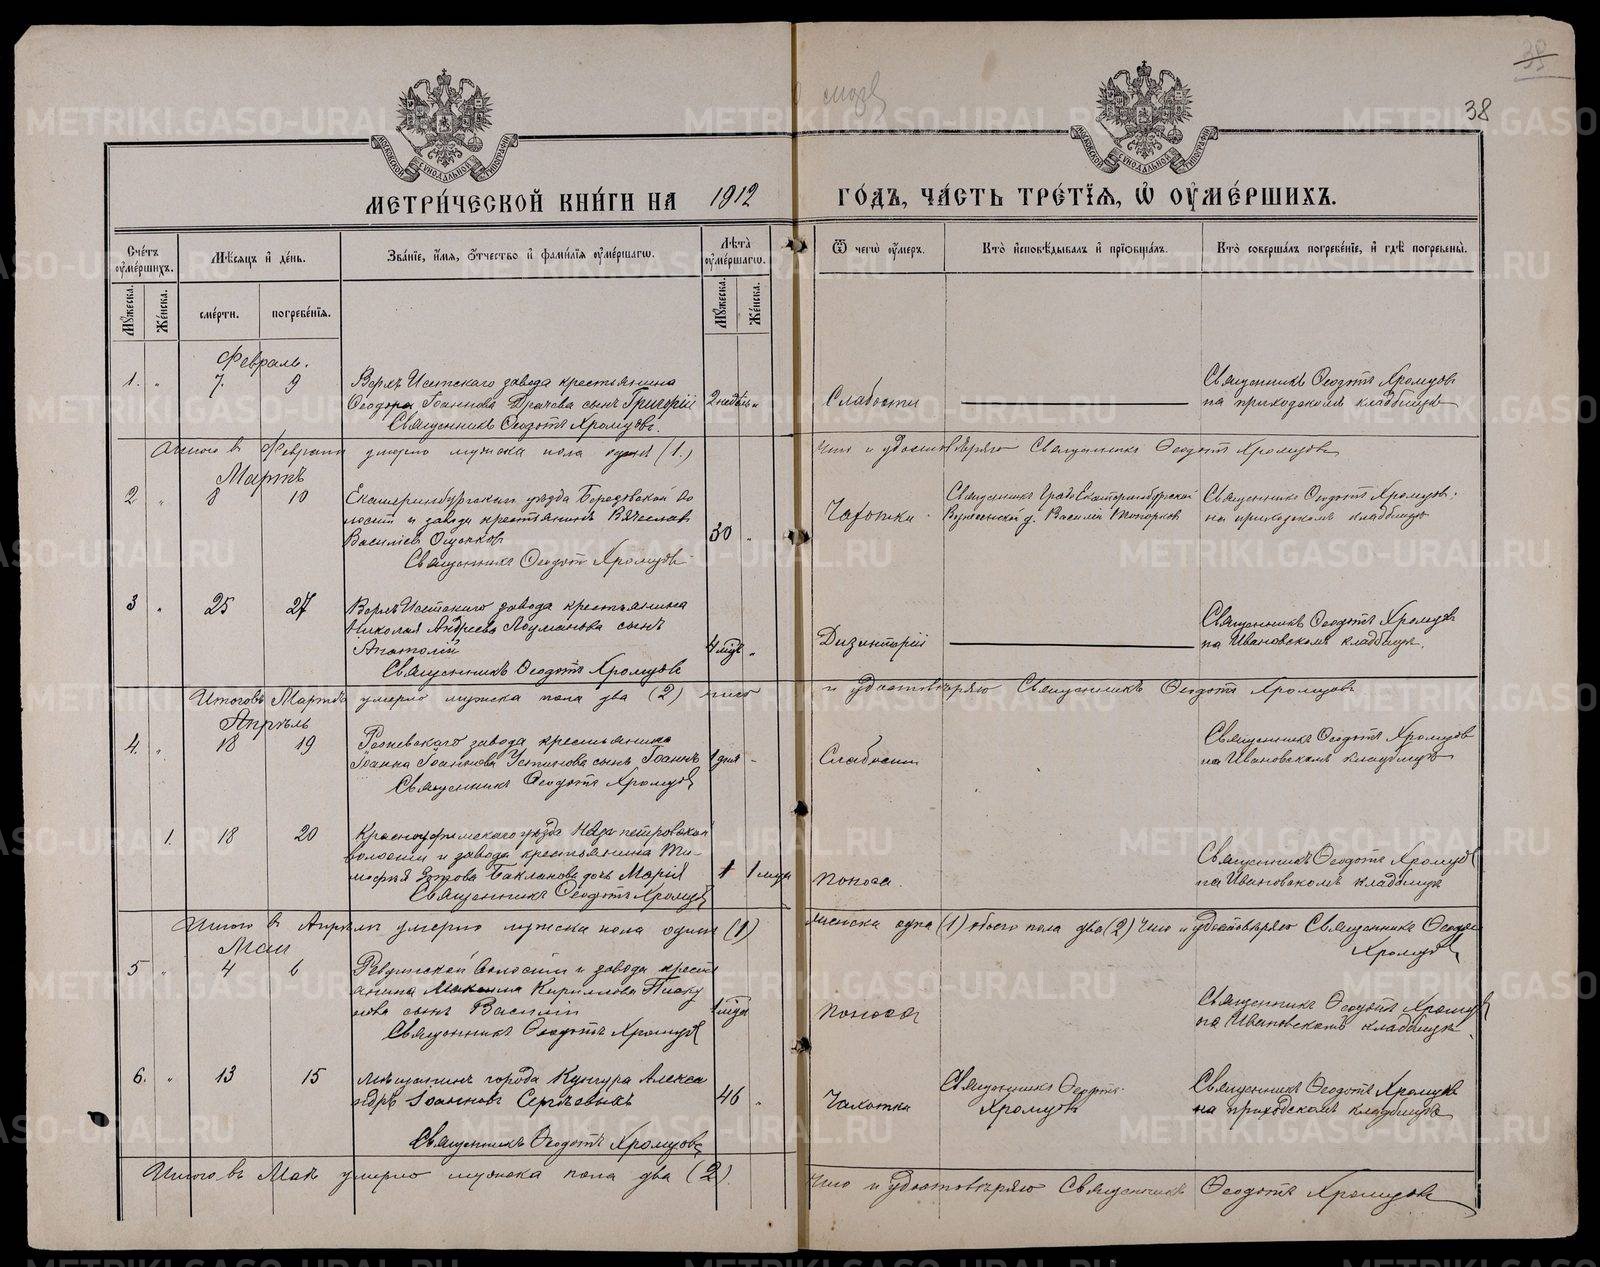 38
38
МОСКОВСКОЙ СѴНОДАЛЬНОЙ ТИПОГРАФІИ
МОСКОВСКОЙ СѴНОДАЛЬНОЙ ТИПОГРАФІИ
МЕТРИ́ЧЕСКОЙ КНИ́ГИ НА 1912 ГО́ДЪ, ЧА́СТЬ ТРЕ́ТІЯ, Ѡ҆ ОУ҆МЕ́РШИХЪ.
Сче́тъ оу҆ме́ршихъ.
Мꙋ́жеска.
Же́нска.
Мѣ́сяцъ и҆ де́нь.
сме́рти.
погребе́нїя.
Зва́нїе, и҆́мя, ѻ҆́тчество и҆ фами́лїя оу҆ме́ршагѡ.
Лѣ́та оу҆ме́ршагѡ.
Мꙋ́жеска.
Же́нска.
Ѿ чегѡ̀ оу҆́меръ.
Кто̀ и҆сповѣ́дывалъ и҆ прїѻбща́лъ.
Кто̀ соверша́лъ погребе́нїе, и҆ гдѣ̀ погребены̀.
Февраль.
1. „ 7. 9 Верхъ Исетскаго завода крестьянина
Ѳеодора Іоаннова сынъ Григорій 2 недѣль „ Слабости
Священникъ Ѳеодотъ Хромцовъ.
Священникъ Ѳеодотъ Хромцовъ
на приходскомъ кладбищѣ
Итого в Февралѣ умерло мужска пола одинъ (1.) Что и удостовѣряю Священникъ Ѳеодотъ Хромцовъ
Мартъ
2 „ 8 10 Екатеринбургскаго уѣзда Березовской во
лости и завода крестьянинъ Вячеслав
Василіев 30 „ Чахотки
Священникъ Ѳеодот Хромцовъ
Священникъ Градо Екатеринбургской
Вознесенской ц. Василій Топорков
Священникъ Ѳеодотъ Хромцовъ
на приходскомъ кладбищѣ
3 „ 25 27 Верхъ Исетскаго завода крестьянина
Николая Андреева сынъ
Анатолій 4 мѣц „ Дизинтеріи
Священникъ Ѳеодотъ Хромцовъ
Священникъ Ѳеодотъ Хромцовъ
на Ивановскомъ кладбищѣ.
Итого въ Мартѣ умерло мужска пола два (2) что и удостовѣряю Священникъ Ѳеодотъ Хромцовъ
Апрѣль
4. „ 18 19 завода крестьянина
Іоанна Іоаннова Устинова сынъ Іоаннъ 1 дня „ Слабости
Священникъ Ѳеодотъ Хромцовъ
Священникъ Ѳеодотъ Хромцовъ
на Ивановскомъ кладбищѣ
1. 18 20 Красноуфимскаго уѣзда петровской
волости и завода крестьянина Ти-
мофея Зотова Бакланова дочь Марія 1 мѣц Поноса.
Священникъ Ѳеодотъ Хромцовъ
Священникъ Ѳеодотъ Хромцовъ
на Ивановскомъ кладбищѣ
Итого в Апрѣлѣ умерло мужска пола один (1) женска одна (1) обоего пола два (2) Что и удостовѣряю Священникъ Ѳеодотъ
Хромцовъ
Май
5 „ 4 6 Ревдинской волости и завода кресть
янина Максима Кириллова
нова сынъ Василій мѣца Поноса
Священникъ Ѳеодотъ Хромцовъ
Священникъ Ѳеодотъ Хромцовъ
на Ивановскомъ кладбищѣ
6. „ 13 15 Мѣщанинъ города Кунгура Алекса
ндръ Іоанновъ Сергѣевыхъ 46 „ Чахотка
Священникъ Ѳеодотъ Хромцовъ
Священникъ Ѳеодотъ
Хромцовъ
Священникъ Ѳеодотъ Хромцовъ
на приходскомъ кладбищѣ
Итого въ Маѣ умерло мужска пола два (2) Что и удостовѣряю Священникъ Ѳеодотъ Хромцовъ
METRIKI.GASO-URAL.RU